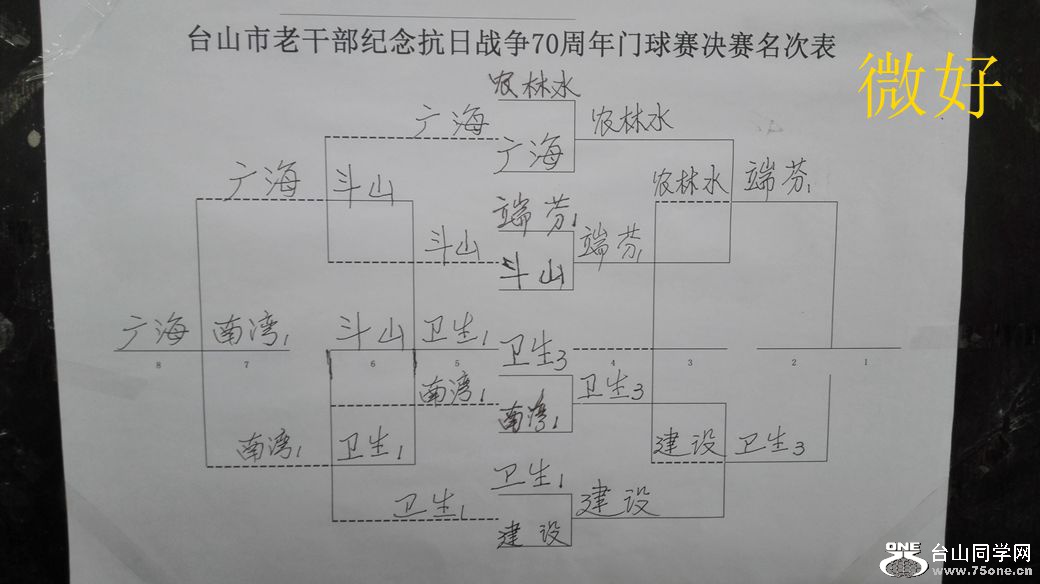 台山市老干部纪念抗日战争70周年门球赛决赛名次表
微好
农林水
广海
农林水
广海
农林水
端芬1
广海
斗山
端芬1
斗山
端芬1
斗山
广海
南湾1
斗山
卫生1
卫生3
8
7
6
5
4
3
2
1
南湾1
卫生3
南湾1
南湾1
卫生1
建设
卫生3
卫生1
卫生1
建设
建设
ONE
台山同学网
www.75one.cn